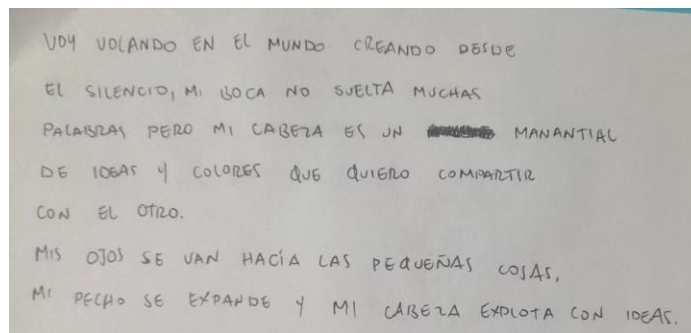 VOY VOLANDO EN EL MUNDO CREANDO DESDE
EL SILENCIO, MI BOCA NO SUELTA MUCHAS
PALABRAS PERO MI CABEZA ES UN MANANTIAL
DE IDEAS Y COLORES QUE QUIERO COMPARTIR
CON EL OTRO.
MIS OJOS SE VAN HACÍA LAS PEQUEÑAS COSAS,
MI PECHO SE EXPANDE Y MI CABEZA EXPLOTA CON IDEAS.